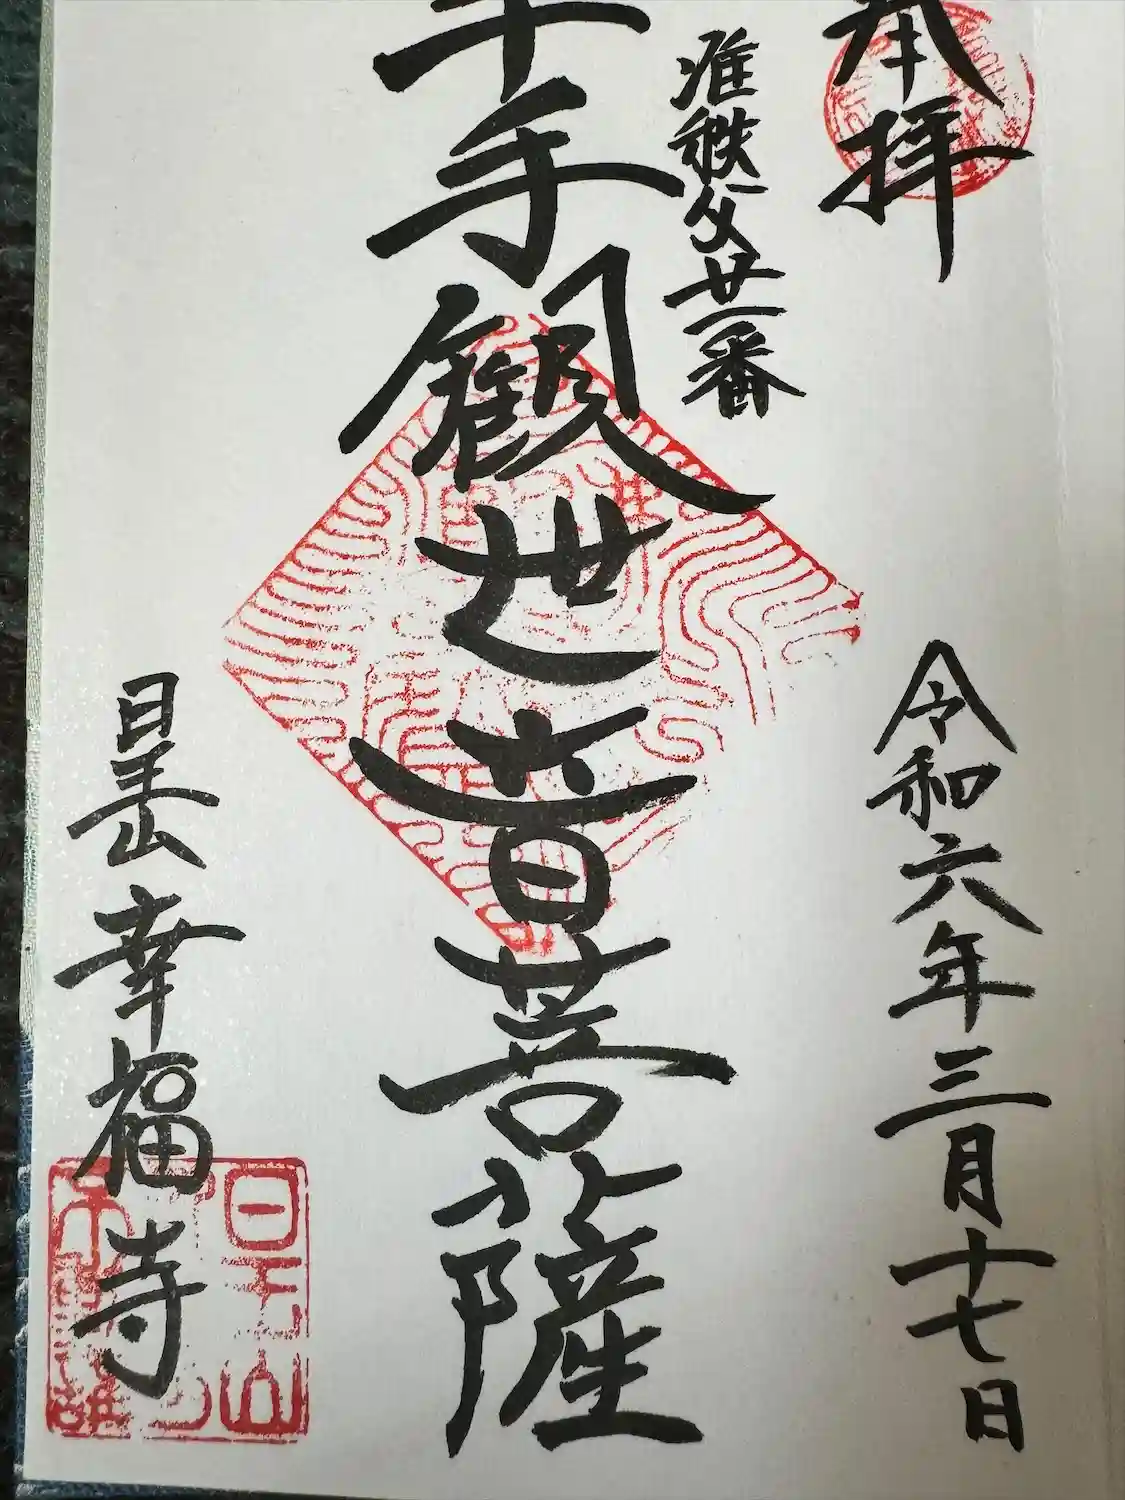 奉拝
令和六年三月十七日
准秩父廿一番
千手観世音菩薩
日王山幸福寺